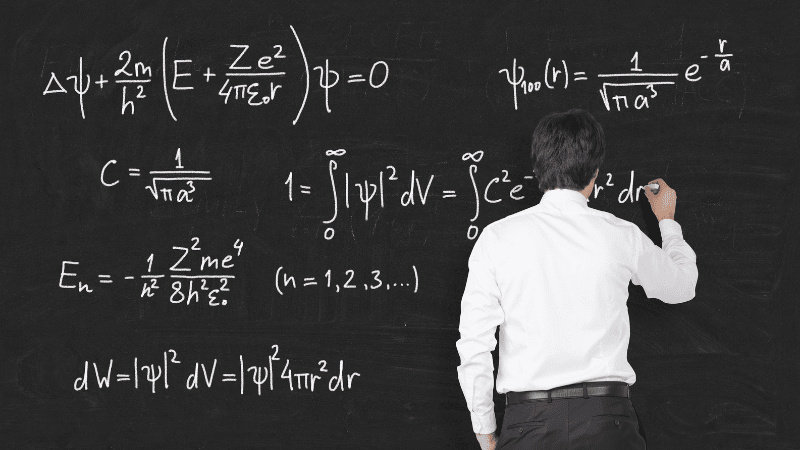 Δψ + 2m/h² (E + Ze²/4πε₀r) ψ = 0
ψ₁₀₀(r) = 1/√πa³ e^(-r/a)
C = 1/√πa³
1 = ∫₀^∞ |ψ|² dV = ∫₀^∞ C² e⁻ r² dr
Eₙ = - 1/n² Z²me⁴/8h²ε₀² (n = 1, 2, 3, ...)
dW = |ψ|² dV = |ψ|² 4πr² dr